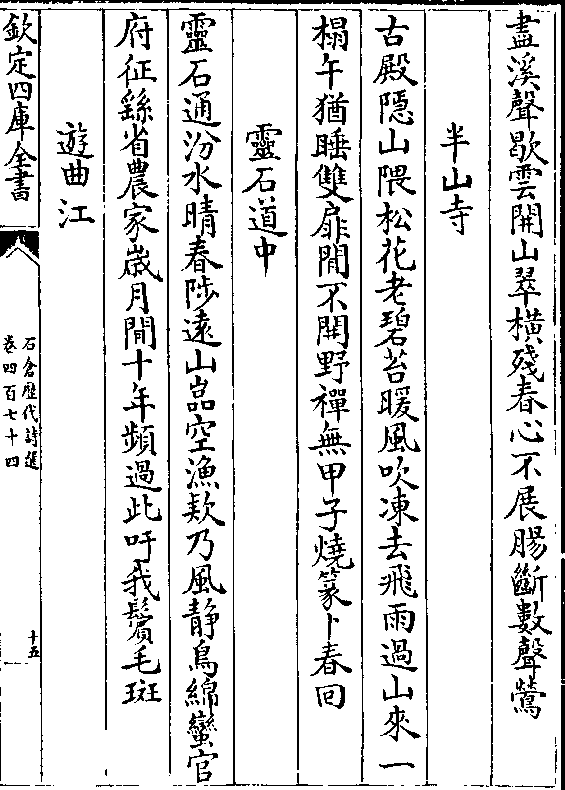 盡溪聲歇雲開山翠横殘春心不展腸斷數聲鶯
半山寺
古殿隱山隈松花老碧苔暖風吹凍去飛雨過山來一
榻午猶睡雙扉閒不開野禪無甲子燒篆卜春回
靈石道中
靈石通汾水晴春陟逺山嵓空漁欵乃風静鳥綿蠻官
府征繇省農家歳月閒十年頻過此吁我鬢毛斑
遊曲江
欽定四庫全書
石倉歴代詩選
卷四百七十四
十五